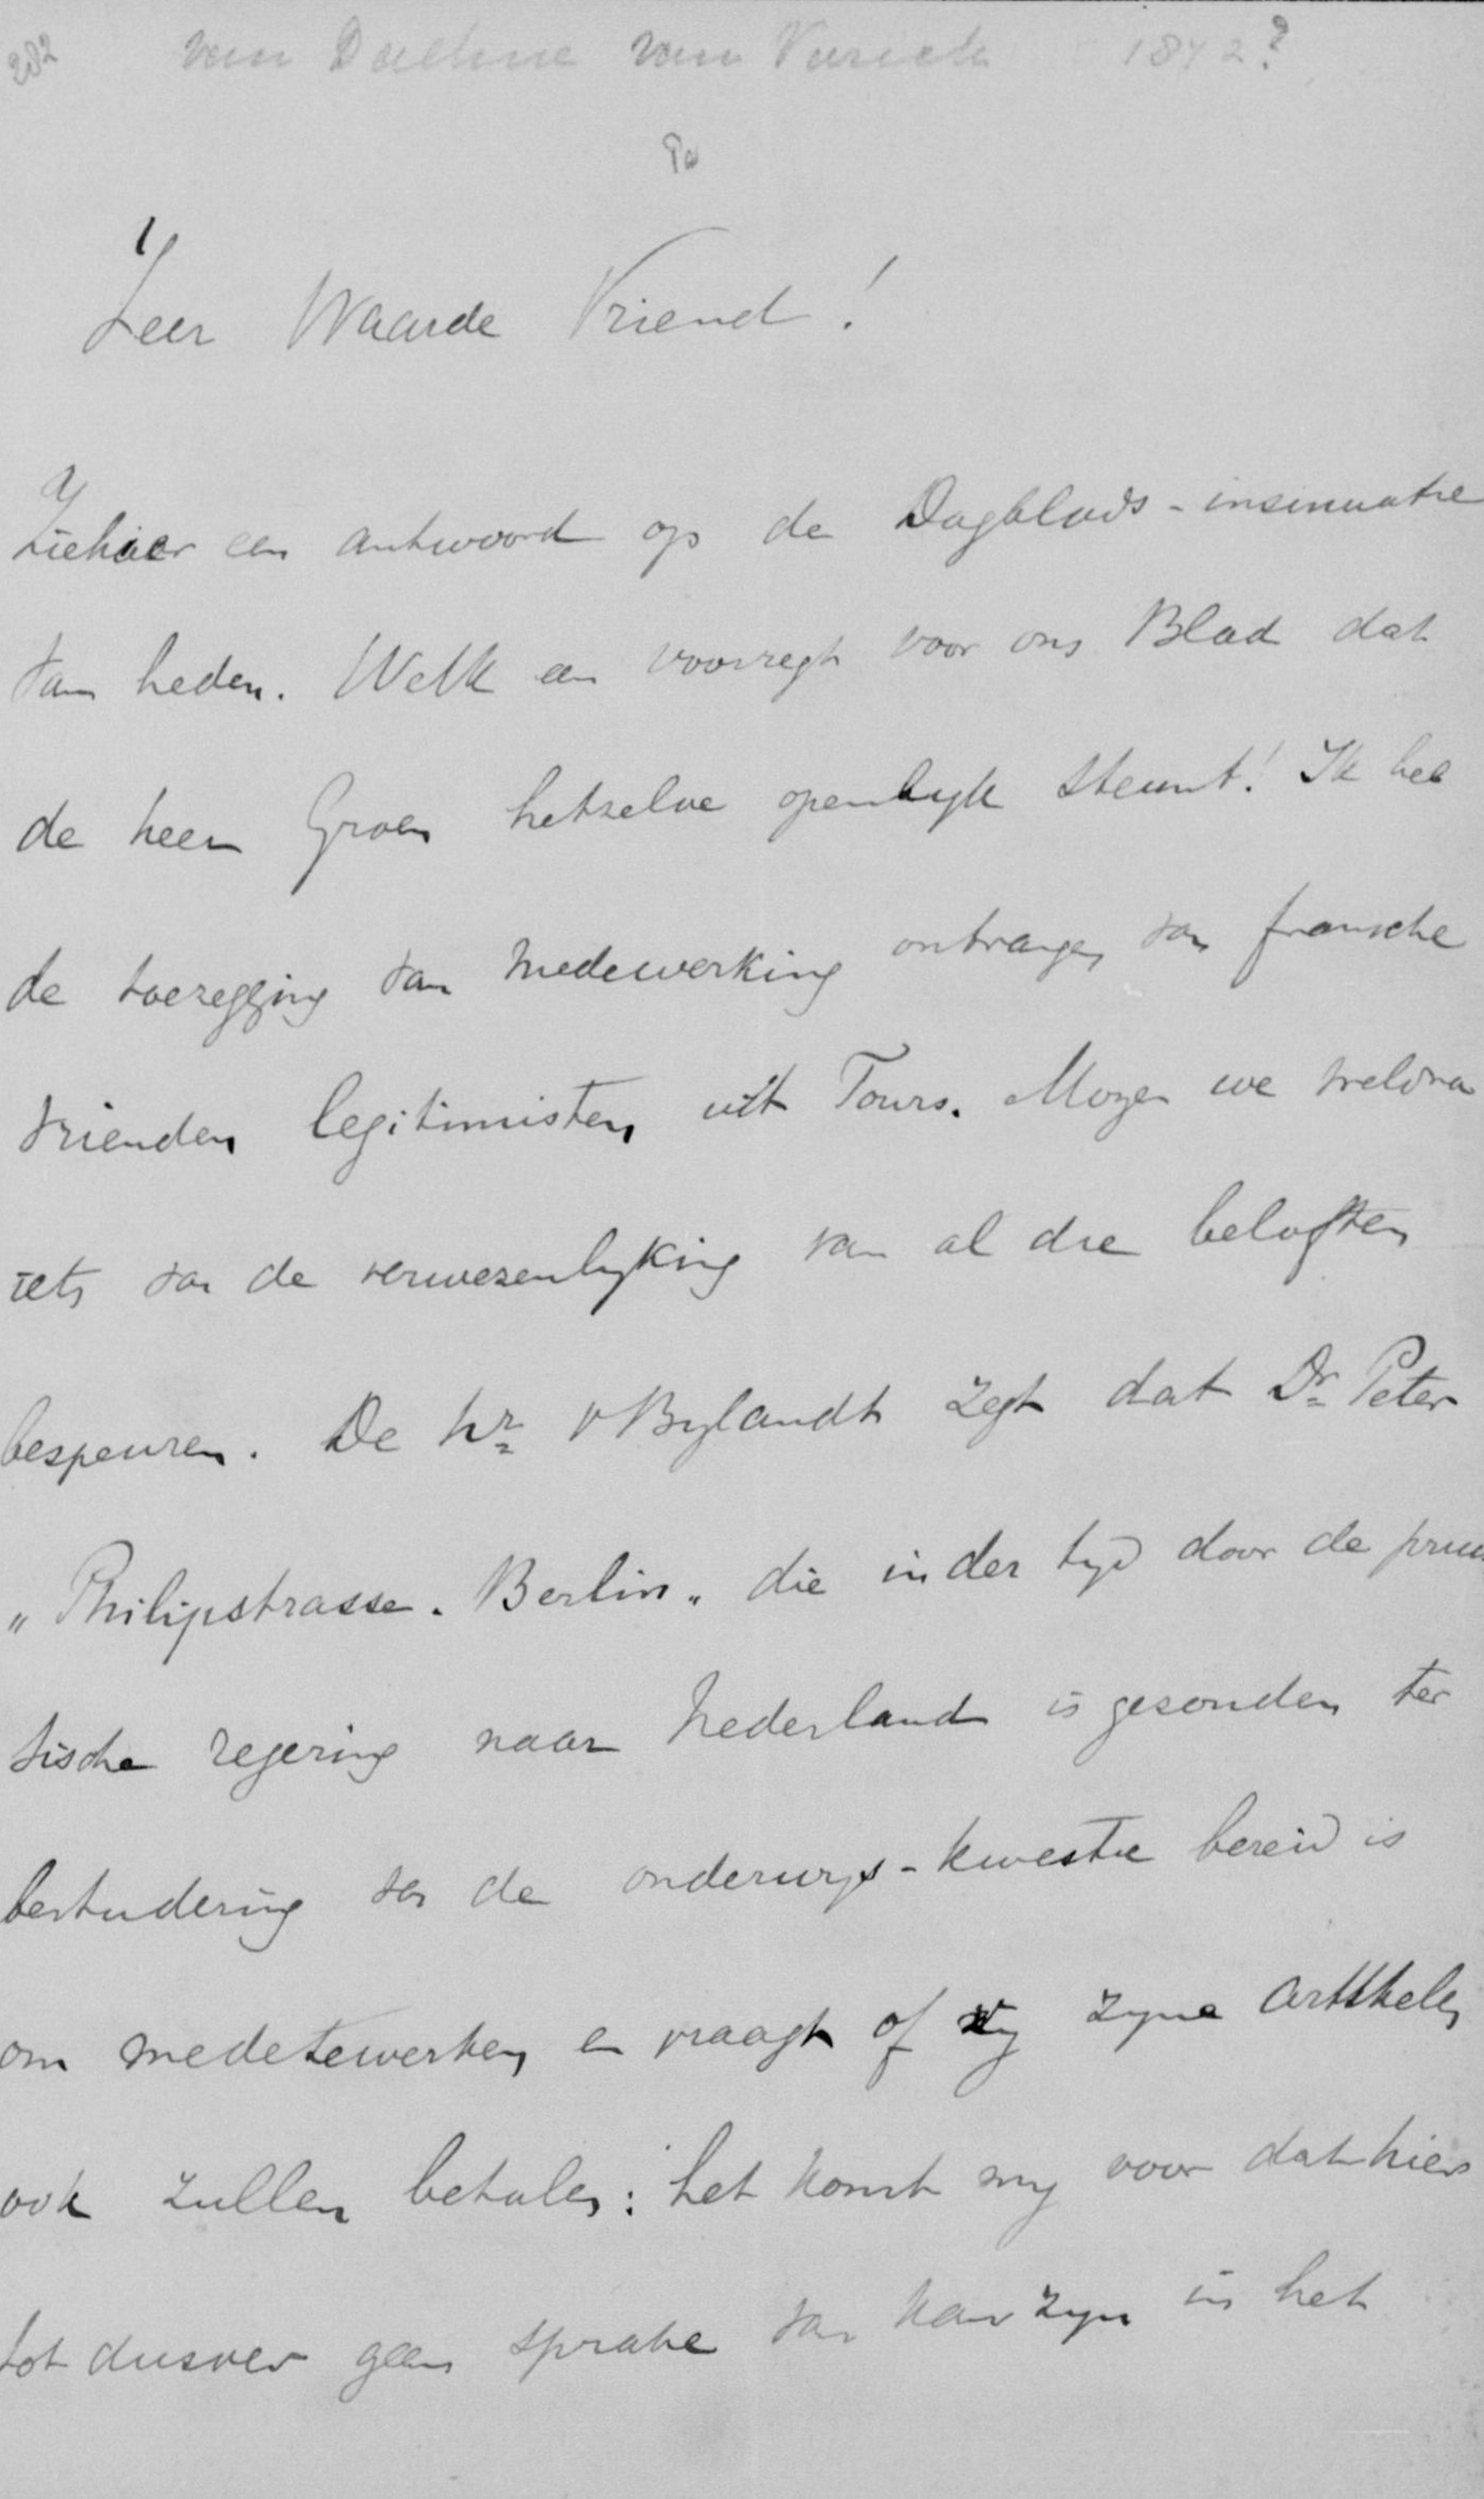 202 van Daehne van Varick 1872?
Zeer Waarde Vriend!
Ziehier een antwoord op de Dagblads-insinuatie
van heden. Welk een voorregt voor ons Blad dat
de heer Groen hetzelve openlyk steunt! Ik heb
de toezegging van medewerking ontvangen van fransche
vrienden legitimisten uit Tours. Mogen we weldra
iets van de verwezenlyking van al die beloften
bespeuren. De hr v Bylandt zegt dat Dr Peter
"Philipstrasse. Berlin" die in der tyd door de pruis
sische regering naar Nederland is gezonden ter
bestudering van de onderwys-kwestie bereid is
om medetewerken en vraagt of wy zyne artikelen
ook zullen betalen: het komt my voor dat hier
tot dusver geen sprake van kan zyn in het